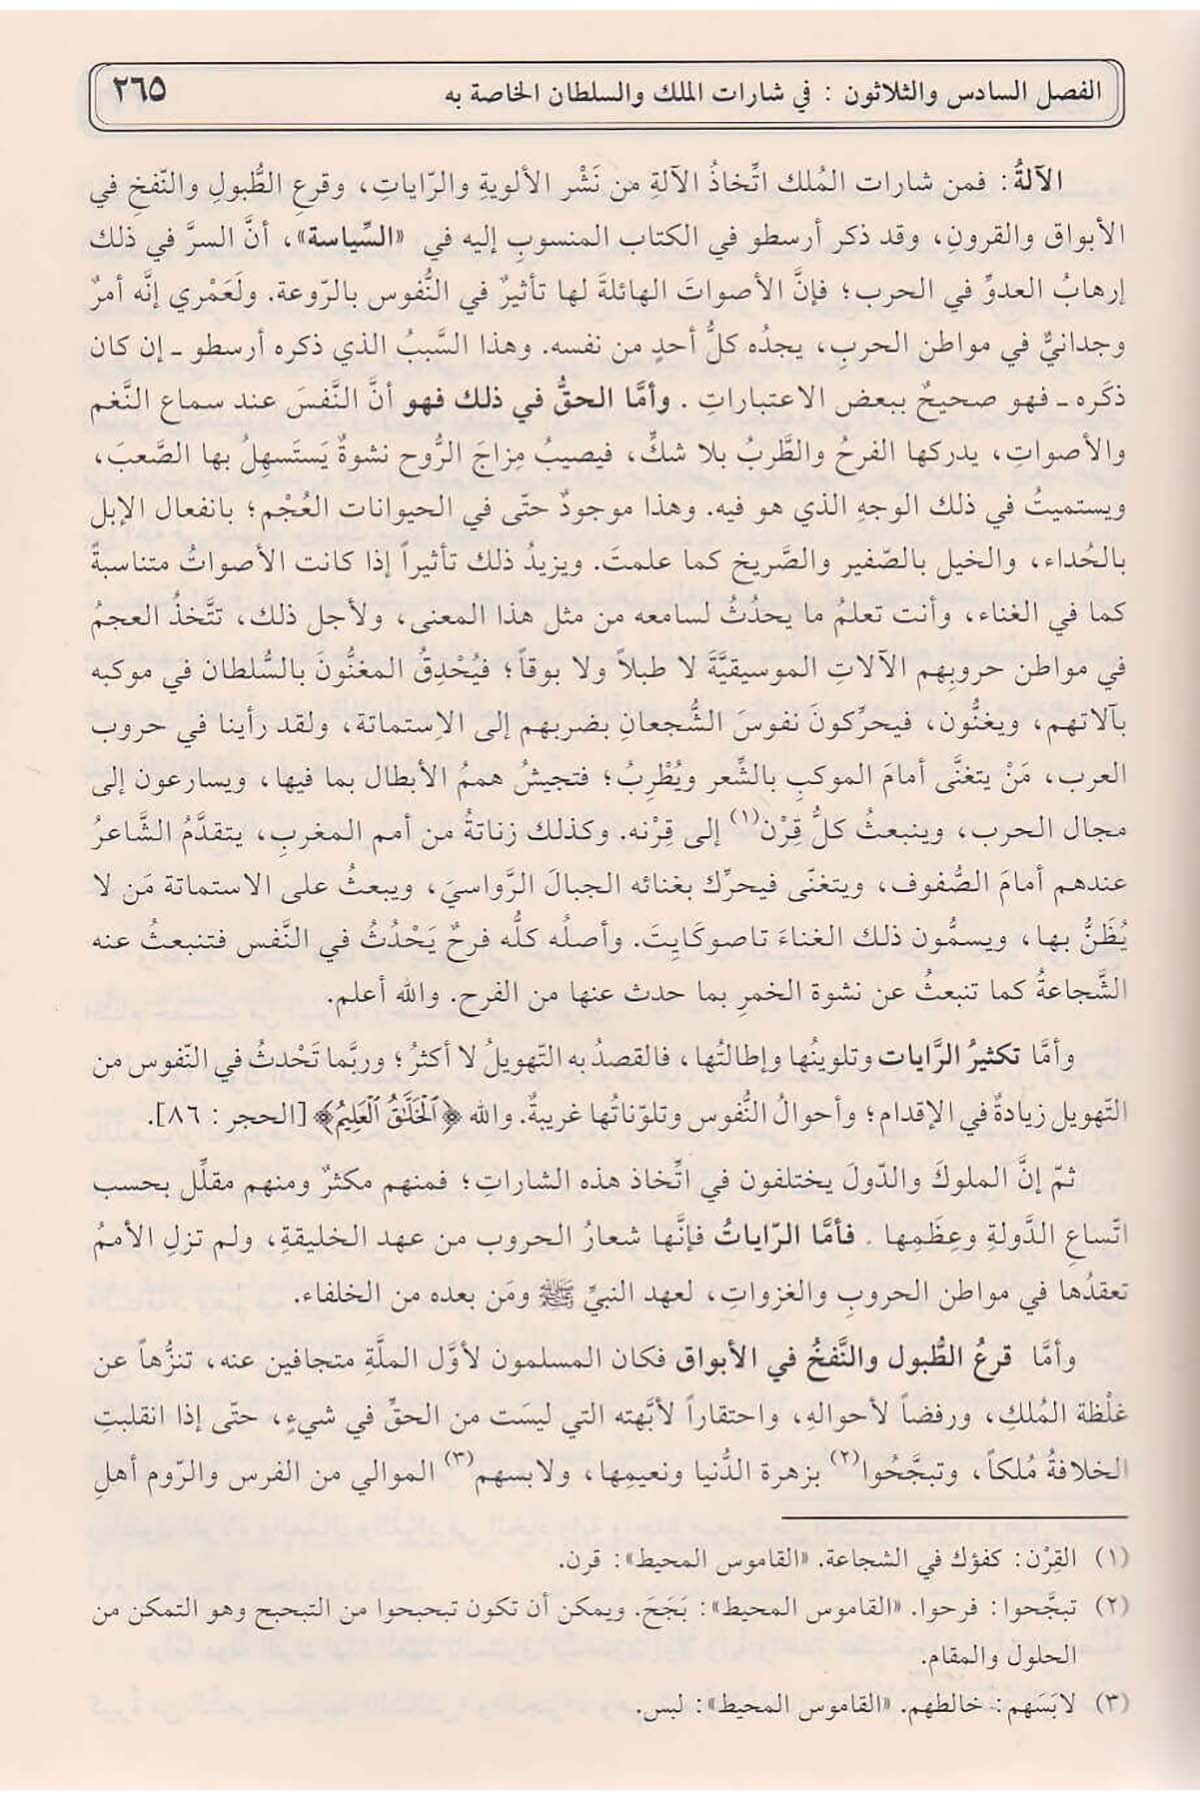 الفصل السادس والثلاثون : في شارات الملك والسلطان الخاصة به
٢٦٥
الآلةُ: فمن شارات المُلك اتِّخاذُ الآلةِ من نَشْر الألويةِ والرّاياتِ، وقرعِ الطُّبولِ والنّفخِ في
الأبواق والقرونِ، وقد ذكر أرسطو في الكتاب المنسوبِ إليه في «السِّياسة»، أنَّ السرَّ في ذلك
إرهابُ العدوِّ في الحرب؛ فإنَّ الأصواتَ الهائلةَ لها تأثيرٌ في النُّفوس بالرّوعة. ولَعَمْري إنَّه أمرٌ
وجدانيٌّ في مواطن الحربِ، يجدُه كلُّ أحدٍ من نفسه. وهذا السَّببُ الذي ذكره أرسطو ـ إن كان
ذكَره ـ فهو صحيحٌ ببعض الاعتباراتِ. وأمَّا الحقُّ في ذلك فهو أنَّ النَّفسَ عند سماع النَّغم
والأصواتِ، يدركها الفرحُ والطَّربُ بلا شكٍّ، فيصيبُ مِزاجَ الرُّوح نشوةٌ يَستَسهِلُ بها الصَّعبَ،
ويستميتُ في ذلك الوجهِ الذي هو فيه. وهذا موجودٌ حتّى في الحيوانات العُجْم؛ بانفعال الإبل
بالحُداء، والخيل بالصّفير والصَّريخ كما علمتَ. ويزيدُ ذلك تأثيراً إذا كانت الأصواتُ متناسبةً
كما في الغناء، وأنت تعلمُ ما يحدُثُ لسامعه من مثل هذا المعنى، ولأجل ذلك، تتَّخذُ العجمُ
في مواطن حروبِهم الآلاتِ الموسيقيَّةَ لا طبلاً ولا بوقاً؛ فيُحْدِقُ المغنُّونَ بالسُّلطان في موكبه
بآلاتهم، ويغنُّون، فيحرِّكونَ نفوسَ الشُّجعانِ بضربهم إلى الاِستماتة، ولقد رأينا في حروب
العرب، مَنْ يتغنَّى أمامَ الموكبِ بالشِّعر ويُطْرِبُ؛ فتجيشُ هممُ الأبطال بما فيها، ويسارعون إلى
مجال الحرب، وينبعثُ كلُّ قِرْن(١) إلى قِرْنه. وكذلك زناتةُ من أمم المغربِ، يتقدَّمُ الشَّاعرُ
عندهم أمامَ الصُّفوف، ويتغنّى فيحرِّك بغنائه الجبالَ الرَّواسيَ، ويبعثُ على الاستماتة مَن لا
يُظَنُّ بها، ويسمُّون ذلك الغناءَ تاصوكَايِتَ. وأصلُه كلُّه فرحٌ يَحْدُثُ في النَّفس فتنبعثُ عنه
الشَّجاعةُ كما تنبعثُ عن نشوة الخمرِ بما حدث عنها من الفرح. والله أعلم.
وأمَّا تكثيرُ الرَّايات وتلوينُها وإطالتُها، فالقصدُ به التّهويلُ لا أكثرُ؛ وربَّما تَحْدثُ في النّفوس من
التّهويل زيادةٌ في الإقدام؛ وأحوالُ النُّفوس وتلوّناتُها غريبةٌ. والله ﴿اَلْخَلَّٰقُ اَلْعَلِيمُ﴾ [الحجر: ٨٦].
ثمّ إنَّ الملوكَ والدّولَ يختلفون في اتِّخاذ هذه الشاراتِ؛ فمنهم مكثرٌ ومنهم مقلِّل بحسب
اتّساعِ الدَّولةِ وعِظَمِها. فأمَّا الرّاياتُ فإنَّها شعارُ الحروب من عهد الخليقةِ، ولم تزلِ الأممُ
تعقدُها في مواطن الحروبِ والغزواتِ، لعهد النبيِّ ﷺ ومَن بعده من الخلفاء.
وأمَّا قرعُ الطُّبول والنَّفخُ في الأبواق فكان المسلمون لأوَّل الملَّةِ متجافين عنه، تنزُّهاً عن
غلْظة المُلكِ، ورفضاً لأحوالهِ، واحتقاراً لأبَّهته التي ليسَت من الحقِّ في شيءٍ، حتّى إذا انقلبتِ
الخلافةُ مُلكاً، وتبجَّحُوا(٢) بزهرة الدُّنيا ونعيمِها، ولابسهم(٣) الموالي من الفرس والرّوم أهلِ
(١) القِرْن: كفؤك في الشجاعة. «القاموس المحيط»: قرن.
(٢) تبجَّحوا: فرحوا. «القاموس المحيط»: بَجَحَ. ويمكن أن تكون تبحبحوا من التبحبح وهو التمكن من
الحلول والمقام.
(٣) لابَسَهم: خالطهم. «القاموس المحيط»: لبس.